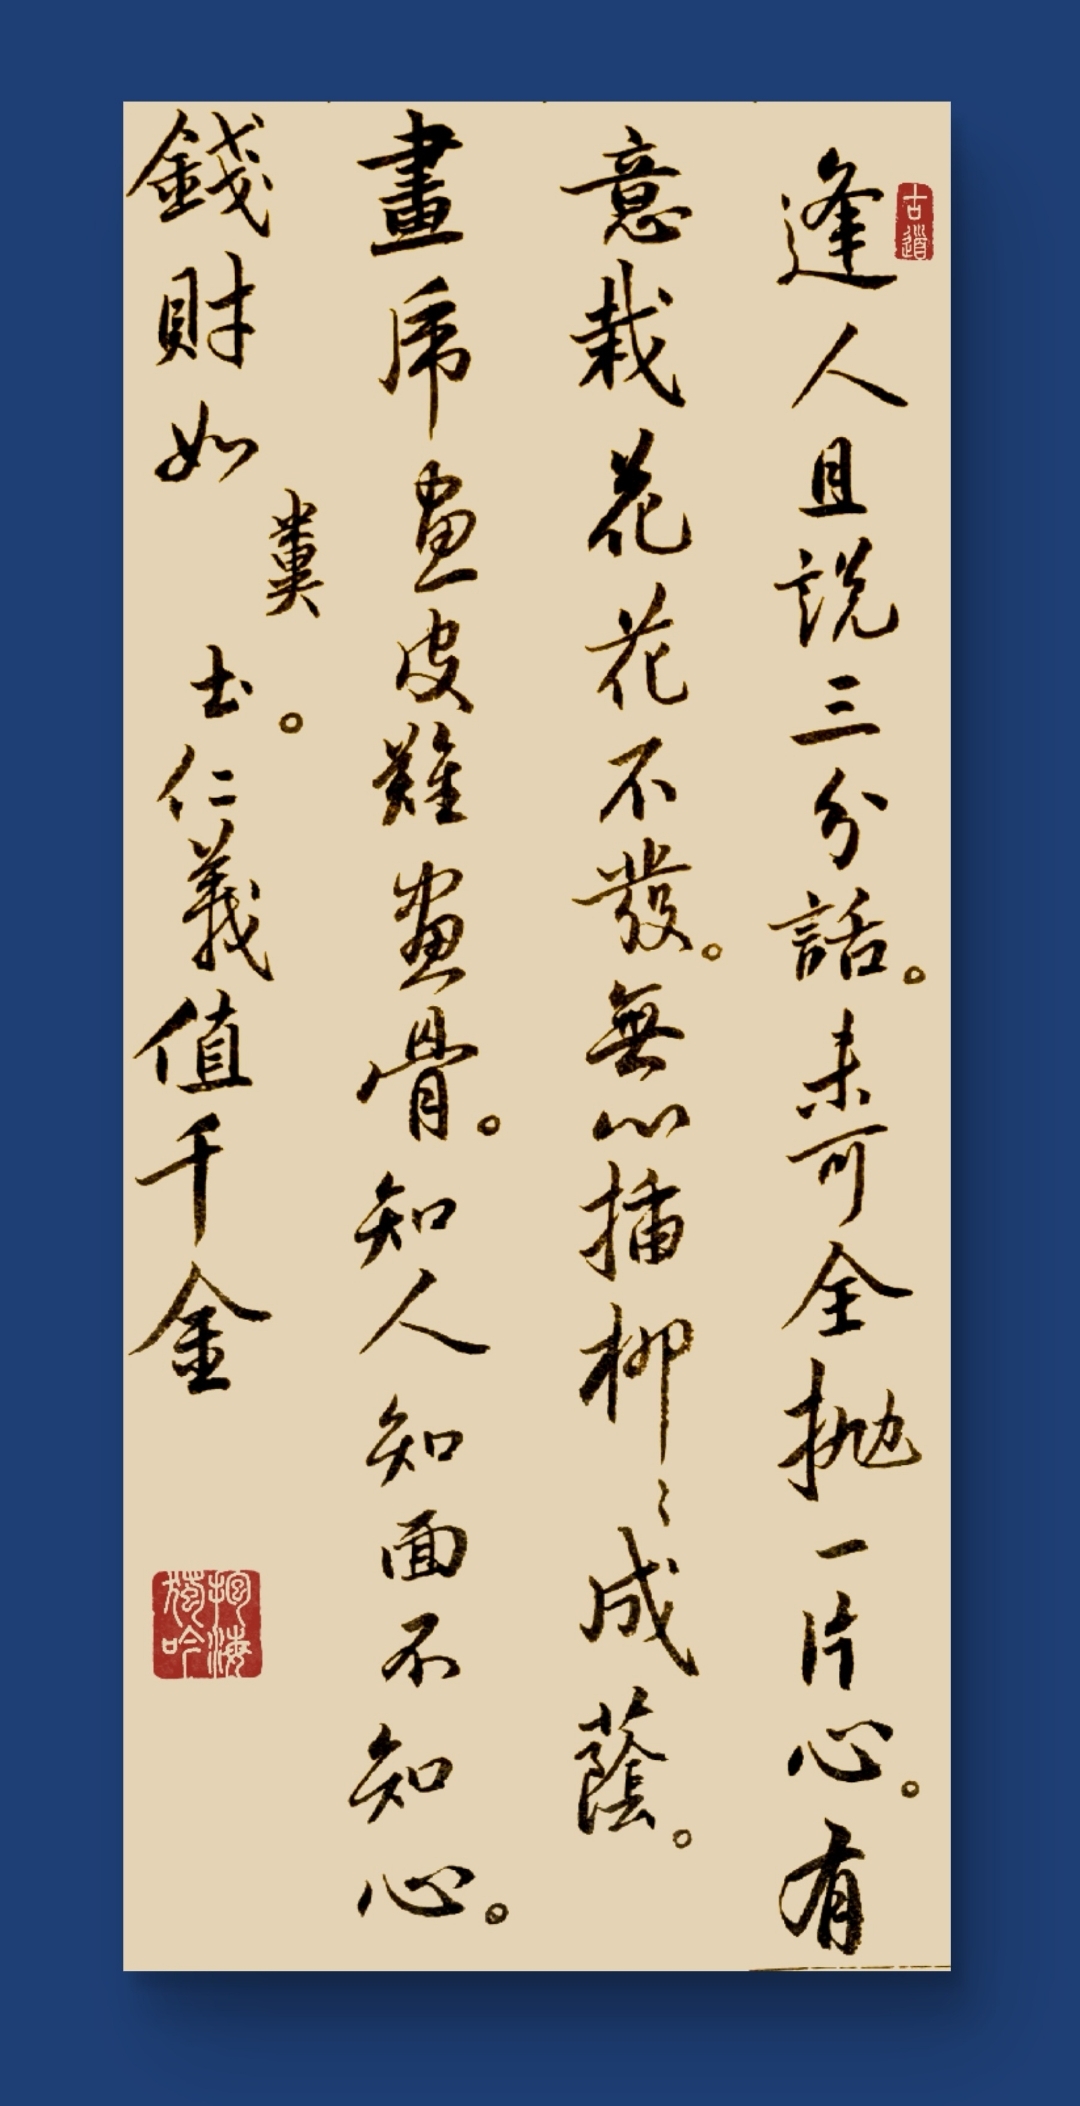 古道
逢人且説三分話。未可全抛一片心。有
意栽花花不發。無心插柳〻成蔭。
畫虎画皮難画骨。知人知面不知心。
錢財如糞土。仁義值千金